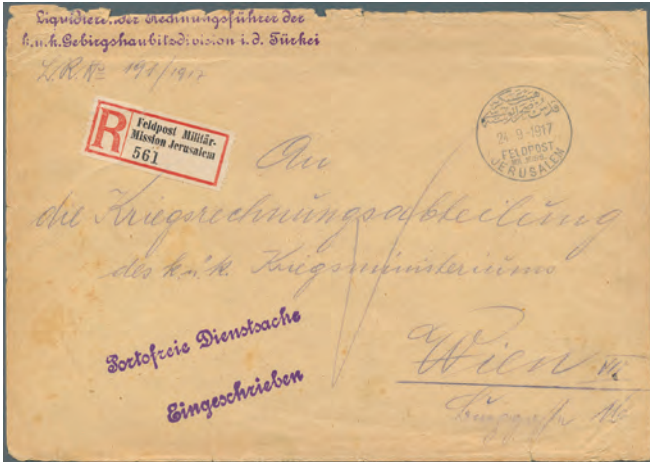 Liquidier. der Rechnungsführer der
k.u.k. Gebirgshaubitzdivision i.d. Türkei
191/1917
R
Feldpost Militär-
Mission Jerusalem
561
24·9·1917
FELDPOST
MIL. MISS.
JERUSALEM
An
die Kriegsrechnungsabteilung
des k.u.k. Kriegsministeriums
Portofreie Dienstsache
Eingeschrieben
Wien